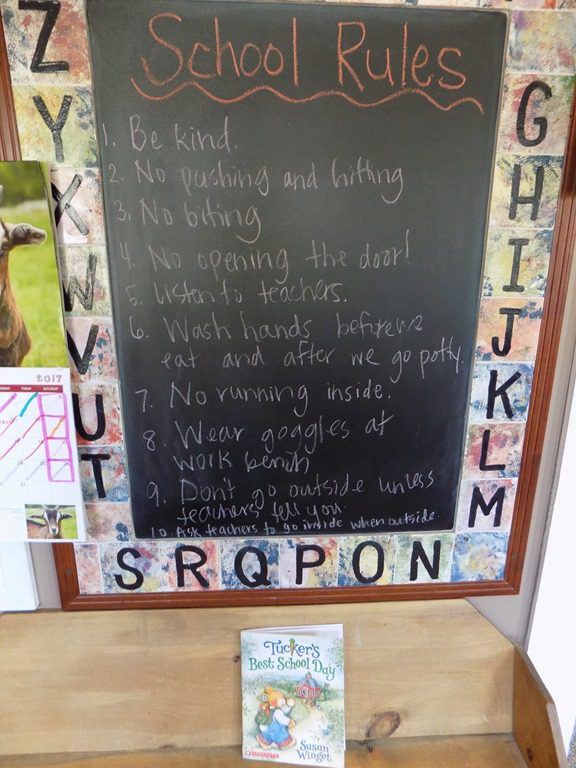 School Rules
1. Be kind.
2. No pushing and hitting
3. No biting
4. No opening the door!
5. Listen to teachers.
6. Wash hands before we
eat and after we go potty.
7. No running inside.
8. Wear goggles at
work bench
9. Don't go outside unless
teachers tell you.
10. Ask teachers to go inside when outside.
Z
Y
X
W
V
U
T
S R Q P O N
G
H
I
J
K
L
M
2017
FRIDAY SATURDAY
Tucker's
Best School Day
Susan
Winget
SCHOLASTIC